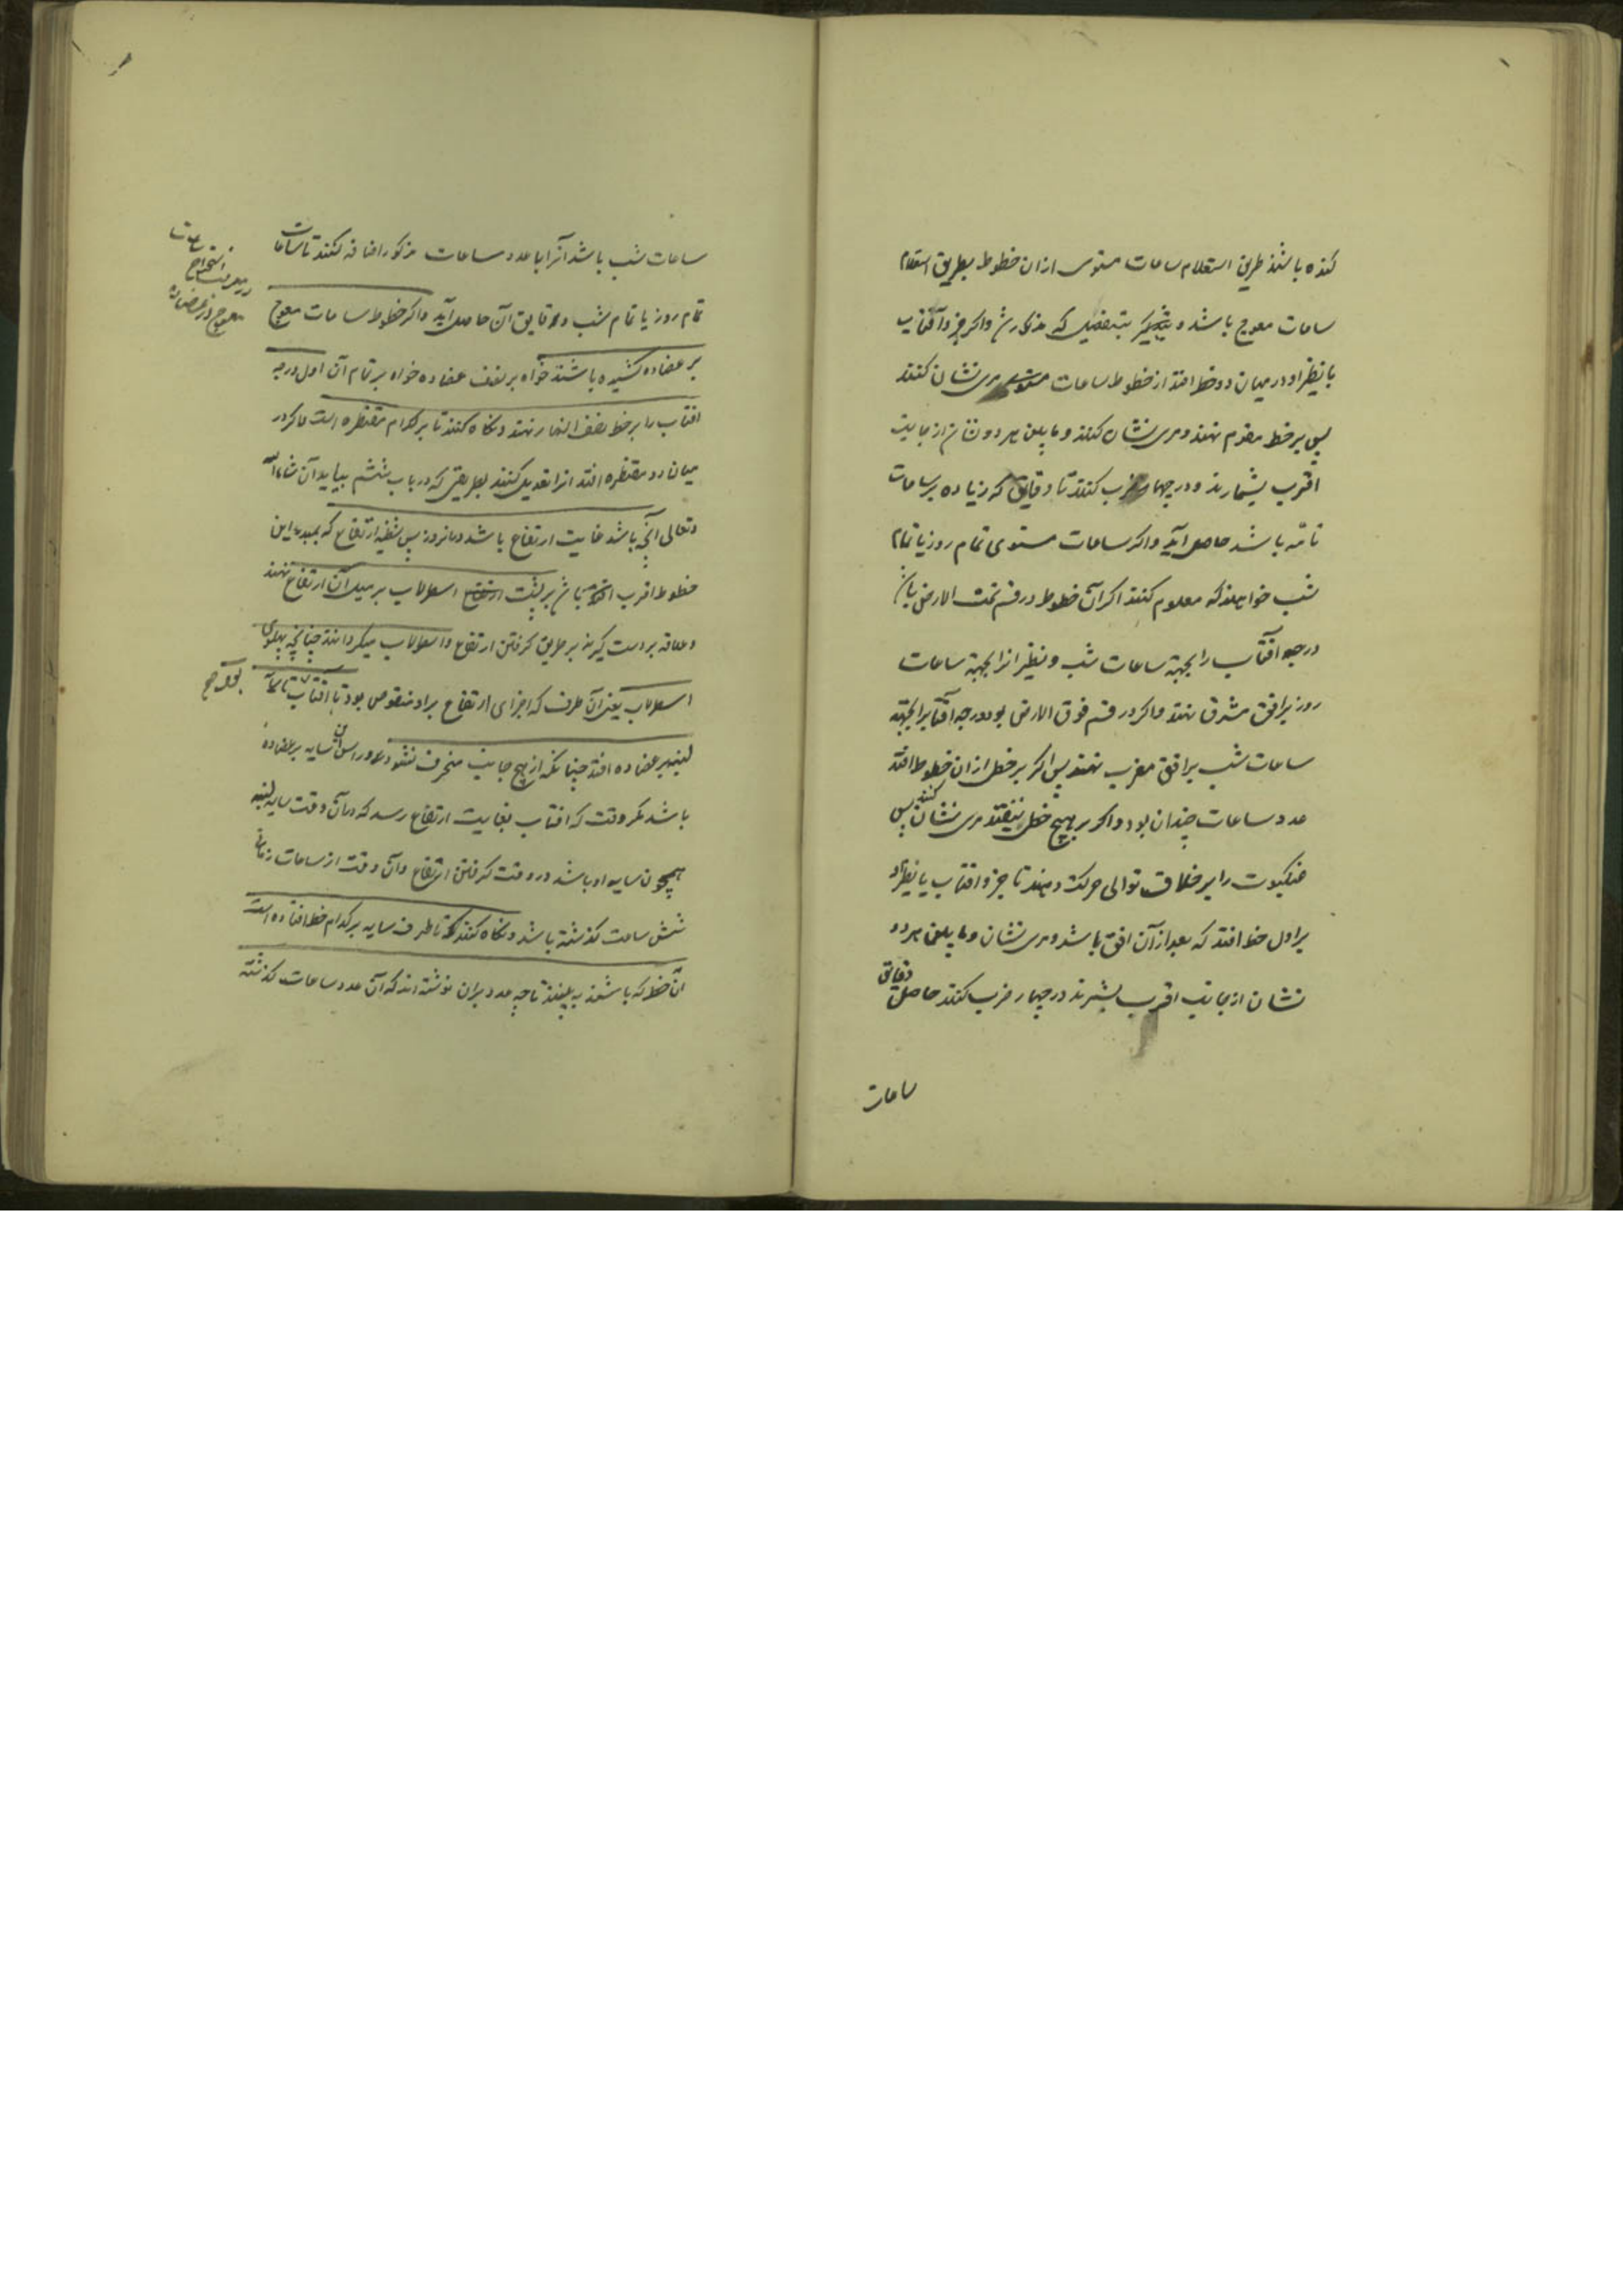 کنده باشند طریق استعلام ساعات مستوی از ان خطوط بطریق استعلام
ساعات معوج باشد که مذکور شد واکر جزو آفتاب
یا نظیر او در میان دو خط افتد از خطوط ساعات مری نشان کنند
پس بر خط مقدم نهند و مری نشان کنند و مابین هر دو نشان از جانب
اقرب بشمارند و در چهار ضرب کنند تا دقایق که زیاده بر ساعات
تامه باشد حاصل آید واکر ساعات مستوی تمام روز یا تمام
شب خواهند که معلوم کنند اکر آن خطوط در قسم تحت الارض باشد
درجه آفتاب را بجهة ساعات شب و نظیر انرا بجهة ساعات
روز بر افق مشرق نهند واکر در قسم فوق الارض بود درجه آفتاب را بجهة
ساعات شب بر افق مغرب نهند پس اکر بر خطی از ان خطوط افتد
عدد ساعات چندان بود واکر بر هیچ خطی نیفتد مری نشان کنند پس
عنکبوت را بر خلاف توالی حرکت دهند تا جزو افتاب یا نظیر او
بر اول خط افتد که بعد از آن افق باشد و مری نشان و مابین هر دو
نشان از جانب اقرب بشمرند در چهار ضرب کنند حاصل دقایق
ساعات
ساعات شب باشد آنرا با عدد ساعات مذکور اضافه کنند تا ساعات
تمام روز یا تمام شب و دقایق آن حاصل آید واکر خطوط ساعات معوج
بر عضاده کشیده باشند خواه بر نصف عضاده خواه بر تمام آن اول درجه
افتاب را بر خط نصف النهار نهند و نکاه کنند تا بر کدام مقنطره است واکر در
میان دو مقنطره افتد انرا تعدیل کنند بطریقی که در باب ششم بیاید آن شاء الله
وتعالی آنچه باشد غایت ارتفاع باشد در انروز پس شظیه ارتفاع که بمبدء این
خطوط اقرب باشد بر پشت اسطرلاب بر مثل آن ارتفاع نهند
و علاقه بر دست کیرند بر طریق کرفتن ارتفاع و اسطرلاب میکردانند چنانچه پهلوی
اسطرلاب یعنی آن طرف که اجزای ارتفاع براو منقوش بود با آفتاب تا سایه
لبنه بر عضاده افتد چنانکه از هیچ جانب منحرف نشود و در اس سایه بر عضاده
باشد مکر وقت که افتاب بغایت ارتفاع رسد که در آن وقت سایه لبنه
همچون سایه او باشد در وقت کرفتن ارتفاع و آن وقت از ساعات زمانی
شش ساعت کذشته باشد و نکاه کنند تا طرف سایه بر کدام خط افتاده است
آن خط که باشد به بینند تا چه عدد بران نوشته اند که آن عدد ساعات کذشته
استخراج ساعات
معوج از عضاده